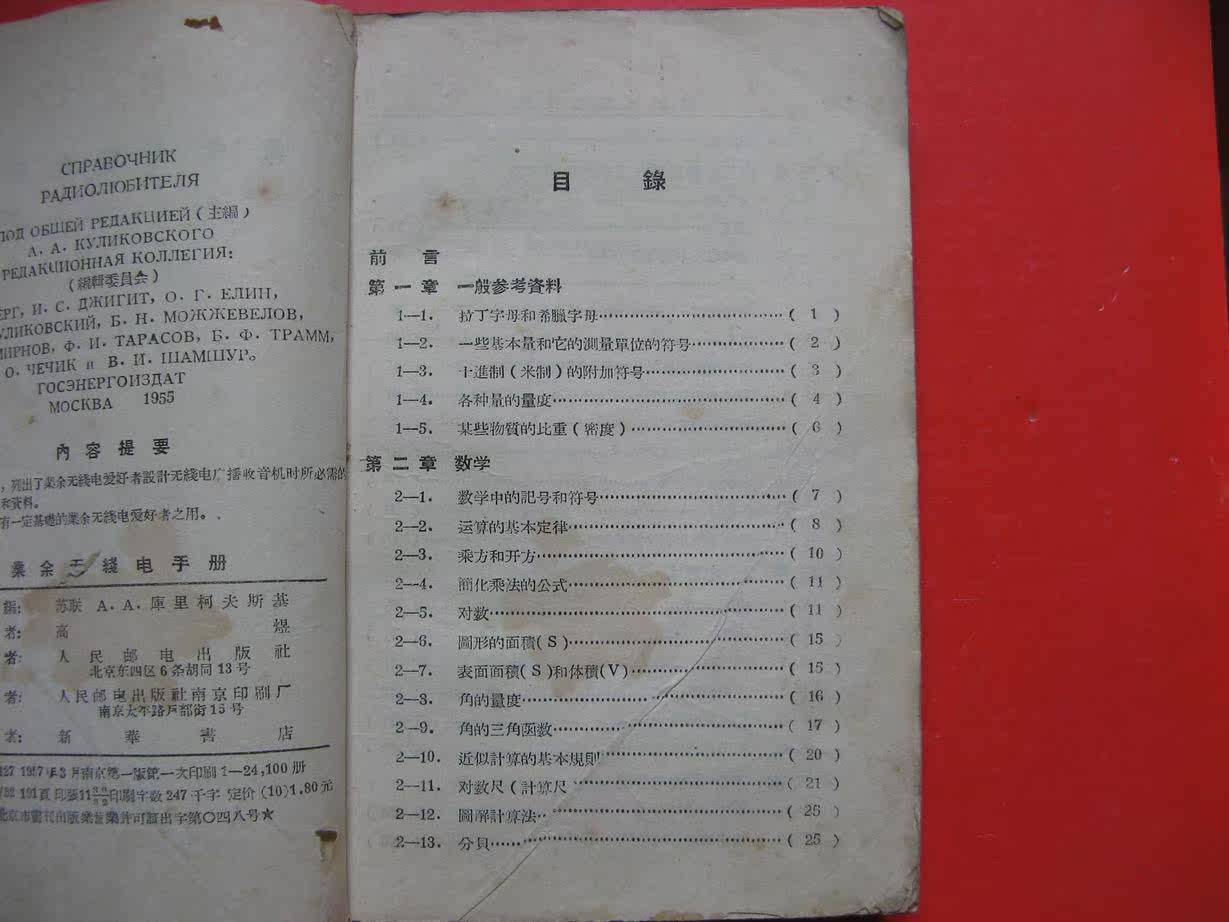 СПРАВОЧНИК
РАДИОЛЮБИТЕЛЯ
ПОД ОБЩЕЙ РЕДАКЦИЕЙ (主編)
А. А. КУЛИКОВСКОГО
РЕДАКЦИОННАЯ КОЛЛЕГИЯ:
(編輯委員会)
ЕРГ, И. С. ДЖИГИТ, О. Г. ЕЛИН,
УЛИКОВСКИЙ, Б. Н. МОЖЖЕВЕЛОВ,
МИРНОВ, Ф. И. ТАРАСОВ, Б. Ф. ТРАММ,
О. ЧЕЧИК и В. И. ШАМШУР。
ГОСЭНЕРГОИЗДАТ
МОСКВА 1955
內容提要
，列出了業余无綫电爱好者設計无綫电广播收音机时所必需的
和資料。
有一定基礎的業余无綫电爱好者之用。
業余无綫电手册
編: 苏联 А. А. 庫里柯夫斯基
者: 高 煜
者: 人民邮电出版社
北京东四区6条胡同13号
者: 人民邮电出版社南京印刷厂
南京太平路戶部街15号
者: 新華書店
年3月南京第一版第一次印刷 1—24,100册
191頁 印刷字数247千字 定价(10)1.80元
北京市書刊出版業营業許可証出字第〇四八号★
目 錄
前 言
第一章 一般参考資料
1—1. 拉丁字母和希臘字母……( 1 )
1—2. 一些基本量和它的測量單位的符号……( 2 )
1—3. 十進制(米制)的附加符号……( 3 )
1—4. 各种量的量度……( 4 )
1—5. 某些物質的比重(密度)……( 6 )
第二章 数学
2—1. 数学中的記号和符号……( 7 )
2—2. 运算的基本定律……( 8 )
2—3. 乘方和开方……( 10 )
2—4. 簡化乘法的公式……( 11 )
2—5. 对数……( 11 )
2—6. 圖形的面積(S)……( 15 )
2—7. 表面面積(S)和体積(V)……( 15 )
2—8. 角的量度……( 16 )
2—9. 角的三角函数……( 17 )
2—10. 近似計算的基本規則……( 20 )
2—11. 对数尺(計算尺……( 21 )
2—12. 圖解計算法……( 25 )
2—13. 分貝……( 25 )